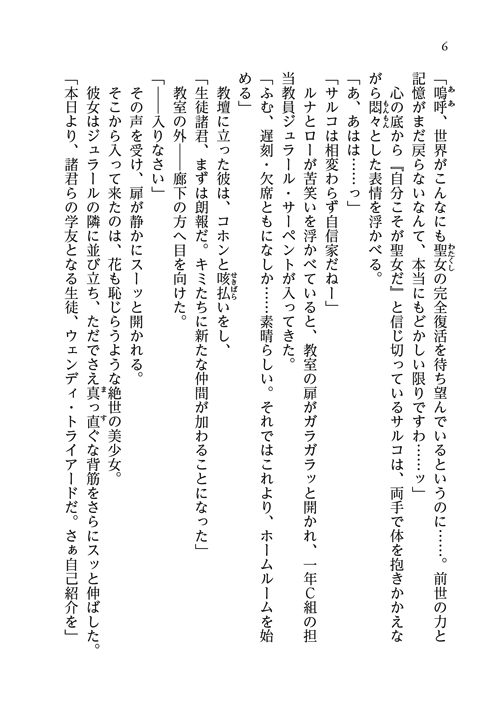 6
「嗚呼、世界がこんなにも聖女の完全復活を待ち望んでいるというのに……。前世の力と
記憶がまだ戻らないなんて、本当にもどかしい限りですわ……ッ」
　心の底から『自分こそが聖女だ』と信じ切っているサルコは、両手で体を抱きかかえな
がら悶々とした表情を浮かべる。
「あ、あはは……っ」
「サルコは相変わらず自信家だねー」
　ルナとローが苦笑いを浮かべていると、教室の扉がガラガラッと開かれ、一年C組の担
当教員ジュラール・サーペントが入ってきた。
「ふむ、遅刻・欠席ともになしか……素晴らしい。それではこれより、ホームルームを始
める」
　教壇に立った彼は、コホンと咳払いをし、
「生徒諸君、まずは朗報だ。キミたちに新たな仲間が加わることになった」
　教室の外――廊下の方へ目を向けた。
「――入りなさい」
　その声を受け、扉が静かにスーッと開かれる。
　そこから入って来たのは、花も恥じらうような絶世の美少女。
　彼女はジュラールの隣に並び立ち、ただでさえ真っ直ぐな背筋をさらにスッと伸ばした。
「本日より、諸君らの学友となる生徒、ウェンディ・トライアードだ。さぁ自己紹介を」